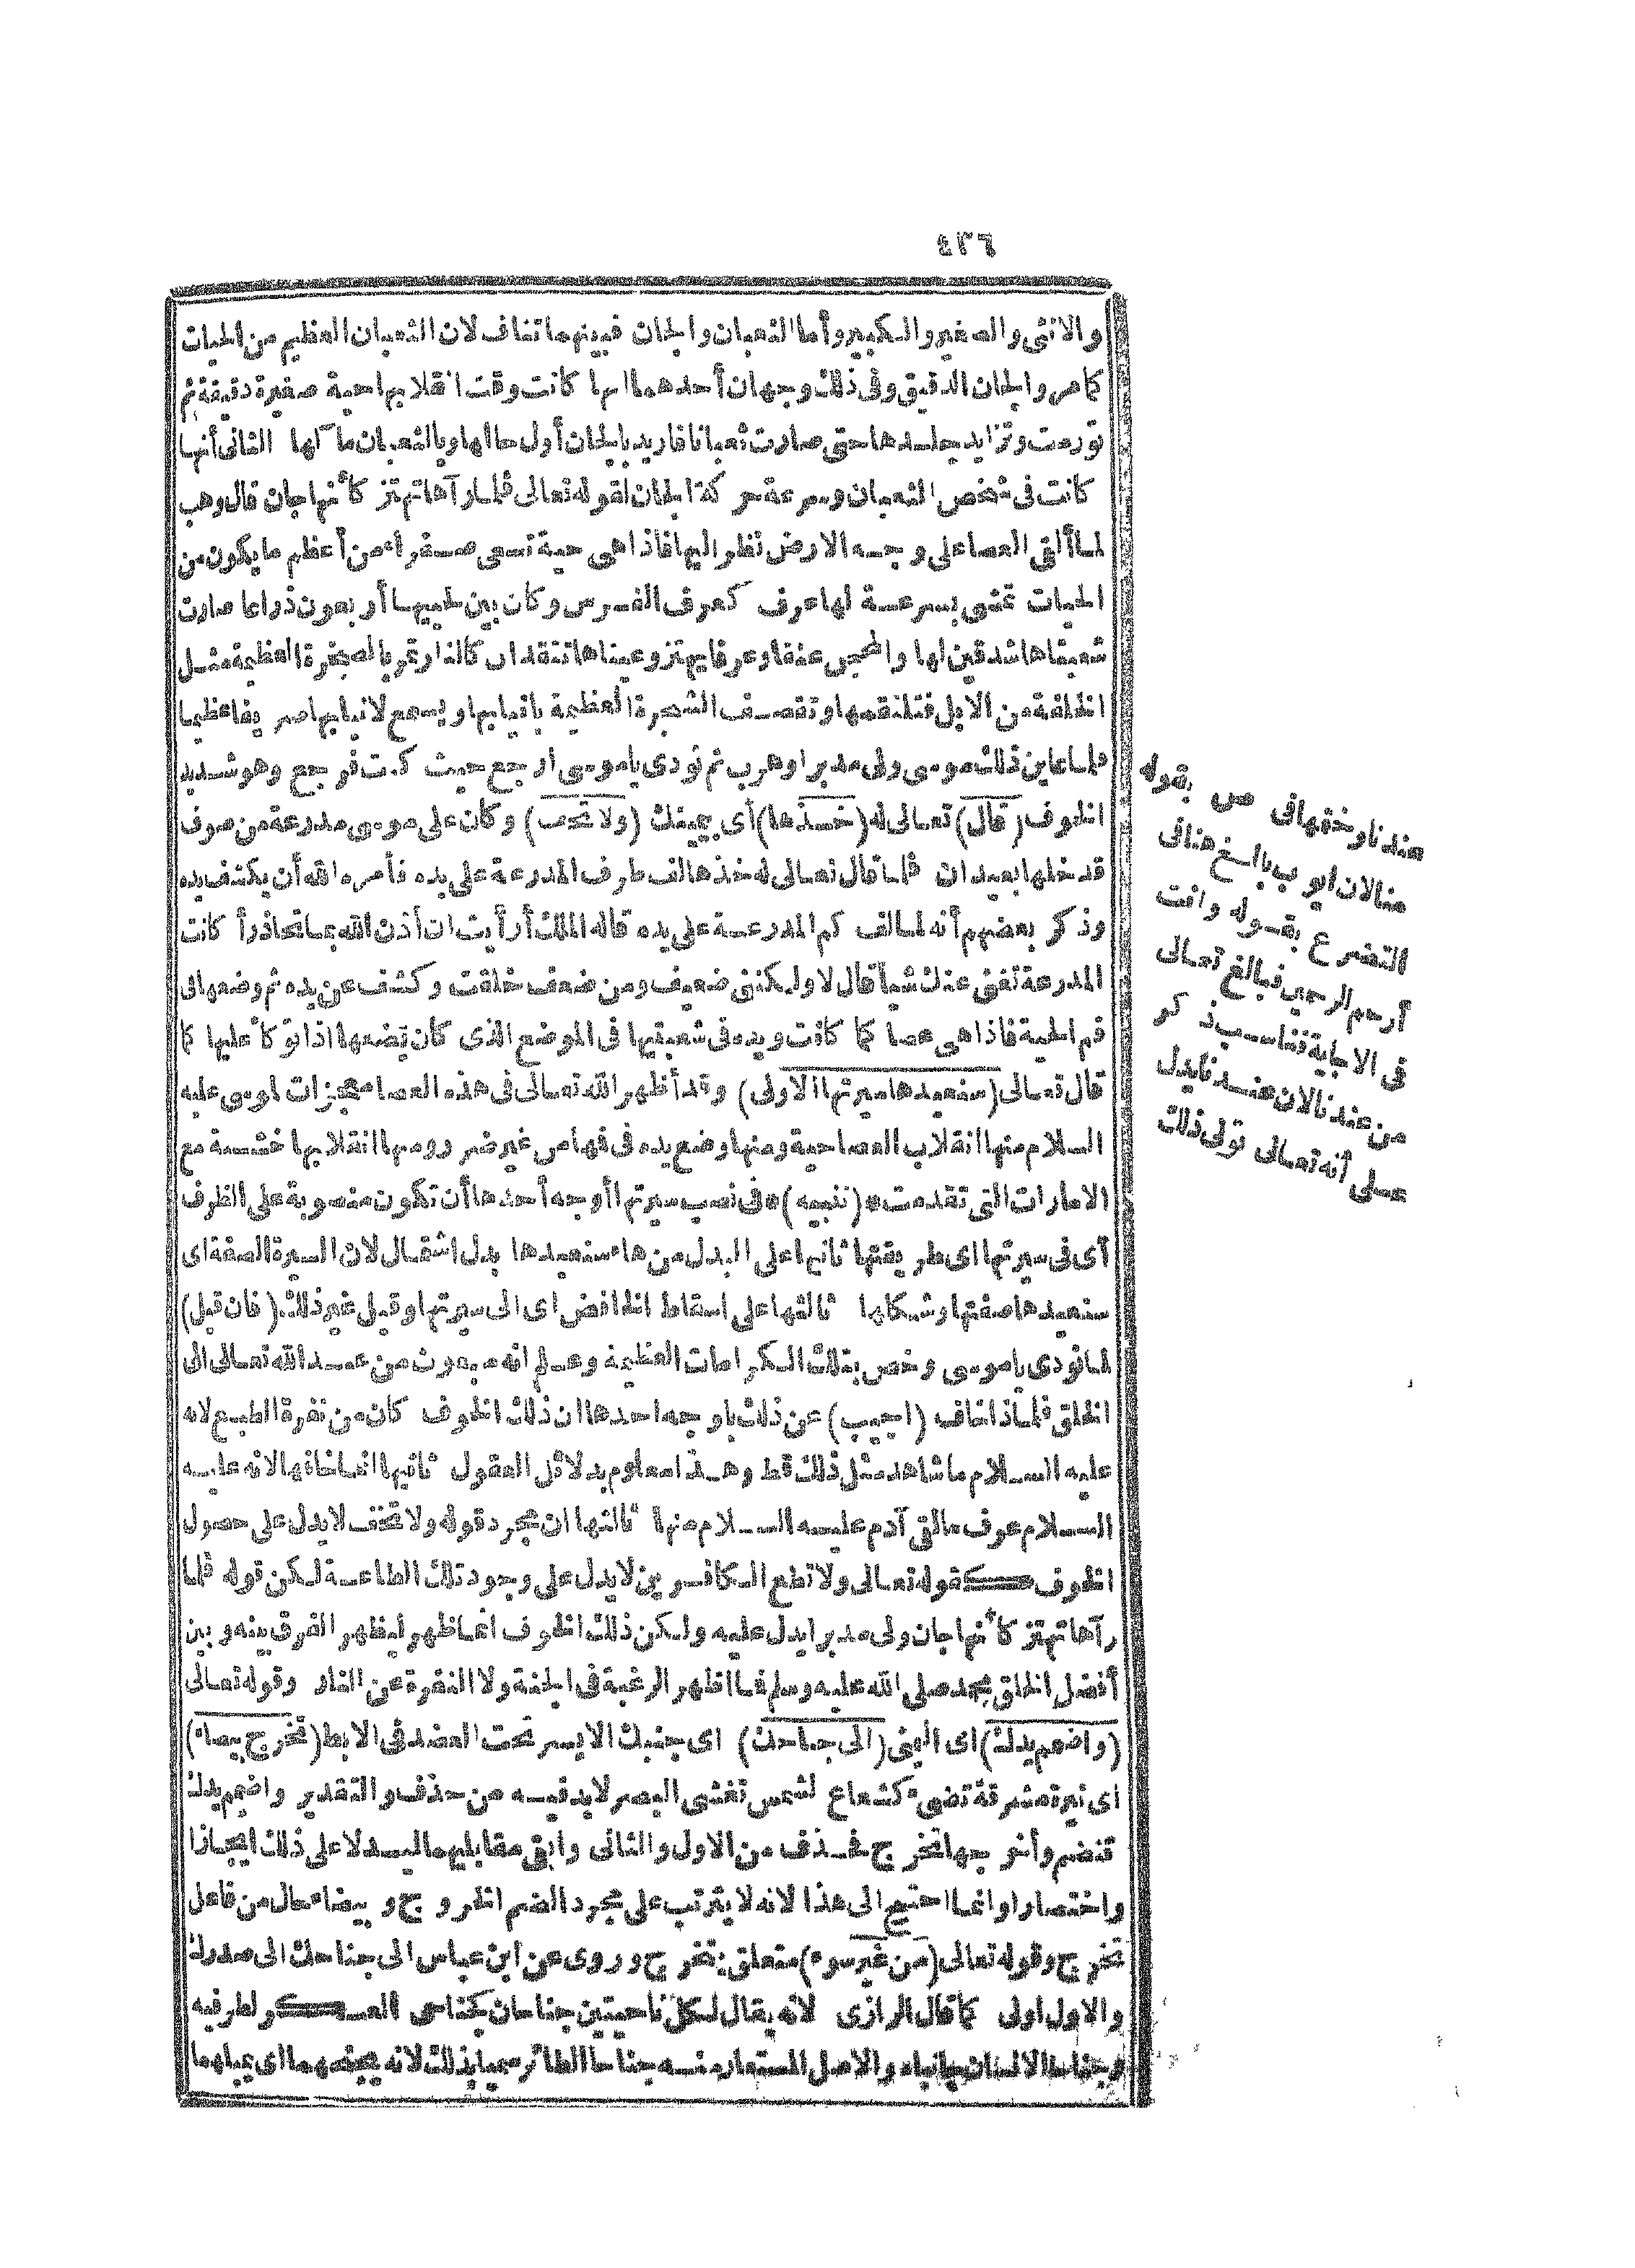 ٤٣٦
والانثى والصغير والكبير وأما الثعبان والجان فبينهما تناف لان الثعبان العظيم من الحيات
كما مر والجان الدقيق وفى ذلك وجهان أحدهما انها كانت وقت انقلابها حية صغيرة دقيقة ثم
تورمت وتزايد جلدها حتى صارت ثعبانا فاريد بالجان أول حالها وبالثعبان مآلها الثانى أنها
كانت فى شخص الثعبان وسرعة حركة الجان لقوله تعالى فلما رآها تهتز كأنها جان قال وهب
لما ألقى العصا على وجه الارض نظر اليها فاذا هى حية تسعى صفراء من أعظم ما يكون من
الحيات تمشى بسرعة لها عرف كعرف الفرس وكان بين لحييها أربعون ذراعا صارت
شعبتاها شدقين لها والمحجن عنقا وعرفا يهتز وعيناها تتقدان كالنار تمر بالصخرة العظيمة مثل
الخلفة من الابل فتلتقمها وتقصف الشجرة العظيمة بانيابها ويسمع لانيابها صريفا عظيما
فلما عاين ذلك موسى ولى مدبرا وهرب ثم نودى ياموسى ارجع حيث كنت فرجع وهو شديد
الخوف (قال) تعالى له (خذها) أى بيمينك (ولا تخف) وكان على موسى مدرعة من صوف
قد خلها بعيدان فلما قال تعالى له خذها لف طرف المدرعة على يده فأمره الله أن يكشف يده
وذكر بعضهم أنه لما لف كم المدرعة على يده قال له الملك أرأيت ان أذن الله بما تحاذر أكانت
المدرعة تغنى عنك شيأ قال لا ولكننى ضعيف ومن ضعف خلقت وكشف عن يده ثم وضعها فى
فم الحية فاذا هى عصا كما كانت ويده فى شعبتيها فى الموضع الذى كان يضعها اذا توكأ عليها كما
قال تعالى (سنعيدها سيرتها الاولى) وقد أظهر الله تعالى فى هذه العصا معجزات لموسى عليه
السلام منها انقلاب العصا حية ومنها وضع يده فى فمها من غير ضرر ومنها انقلابها خشبة مع
الامارات التى تقدمت *(تنبيه)* فى نصب سيرتها أوجه أحدها أن تكون منصوبة على الظرف
أى فى سيرتها اى طريقتها ثانيها على البدل من هاء سنعيدها بدل اشتمال لان السيرة الصفة اى
سنعيدها صفتها وشكلها ثالثها على اسقاط الخافض اى الى سيرتها وقيل غير ذلك (فان قيل)
لما نودى ياموسى وخص بتلك الكرامات العظيمة وعلم انه مبعوث من عند الله تعالى الى
الخلق فلماذا خاف (اجيب) عن ذلك باوجه احدها ان ذلك الخوف كان من نفرة الطبع لانه
عليه السلام ما شاهد مثل ذلك قط وهذا معلوم بدلائل العقول ثانيها انما خافها لانه عليه
السلام عرف ما لقى آدم عليه السلام منها ثالثها ان مجرد قوله ولا تخف لا يدل على حصول
الخوف كقوله تعالى ولا تطع الكافرين لا يدل على وجود تلك الطاعة لكن قوله فلما
رآها تهتز كأنها جان ولى مدبرا يدل عليه ولكن ذلك الخوف انما ظهر ليظهر الفرق بينه وبين
أفضل الخلق محمد صلى الله عليه وسلم فما اظهر الرغبة فى الجنة ولا النفرة عن النار وقوله تعالى
(واضمم يدك) اى اليمنى (الى جناحك) اى جنبك الايسر تحت العضد فى الابط (تخرج بيضاء)
اى نيرة مشرقة تضىء كشعاع لشمس تغشى البصر لابد فيه من حذف والتقدير واضمم يدك
تنضم وأخرجها تخرج فحذف من الاول والثانى وابقى مقابليهما ليدلا على ذلك ايجازا
واختصارا وانما احتيج الى هذا لانه لا يترتب على مجرد الضم الخروج وبيضاء حال من فاعل
تخرج وقوله تعالى (من غير سوء) متعلق بتخرج وروى عن ابن عباس الى جناحك الى صدرك
والاول اولى كما قال الرازى لانه يقال لكل ناحيتين جناحان كجناحى العسكر لطرفيه
وجناحا الانسان جانباه والاصل المستعار منه جناحا الطائر سميا بذلك لانه يجنحهما اى يميلهما
بقوله
عندنا وختمها فى ص
منا لان ايوب بالغ هنا فى
التضرع بقوله وانت
أرحم الراحمين فبالغ تعالى
فى الاجابة فناسب ذكر
من عندنا لان عندنا يدل
على أنه تعالى تولى ذلك